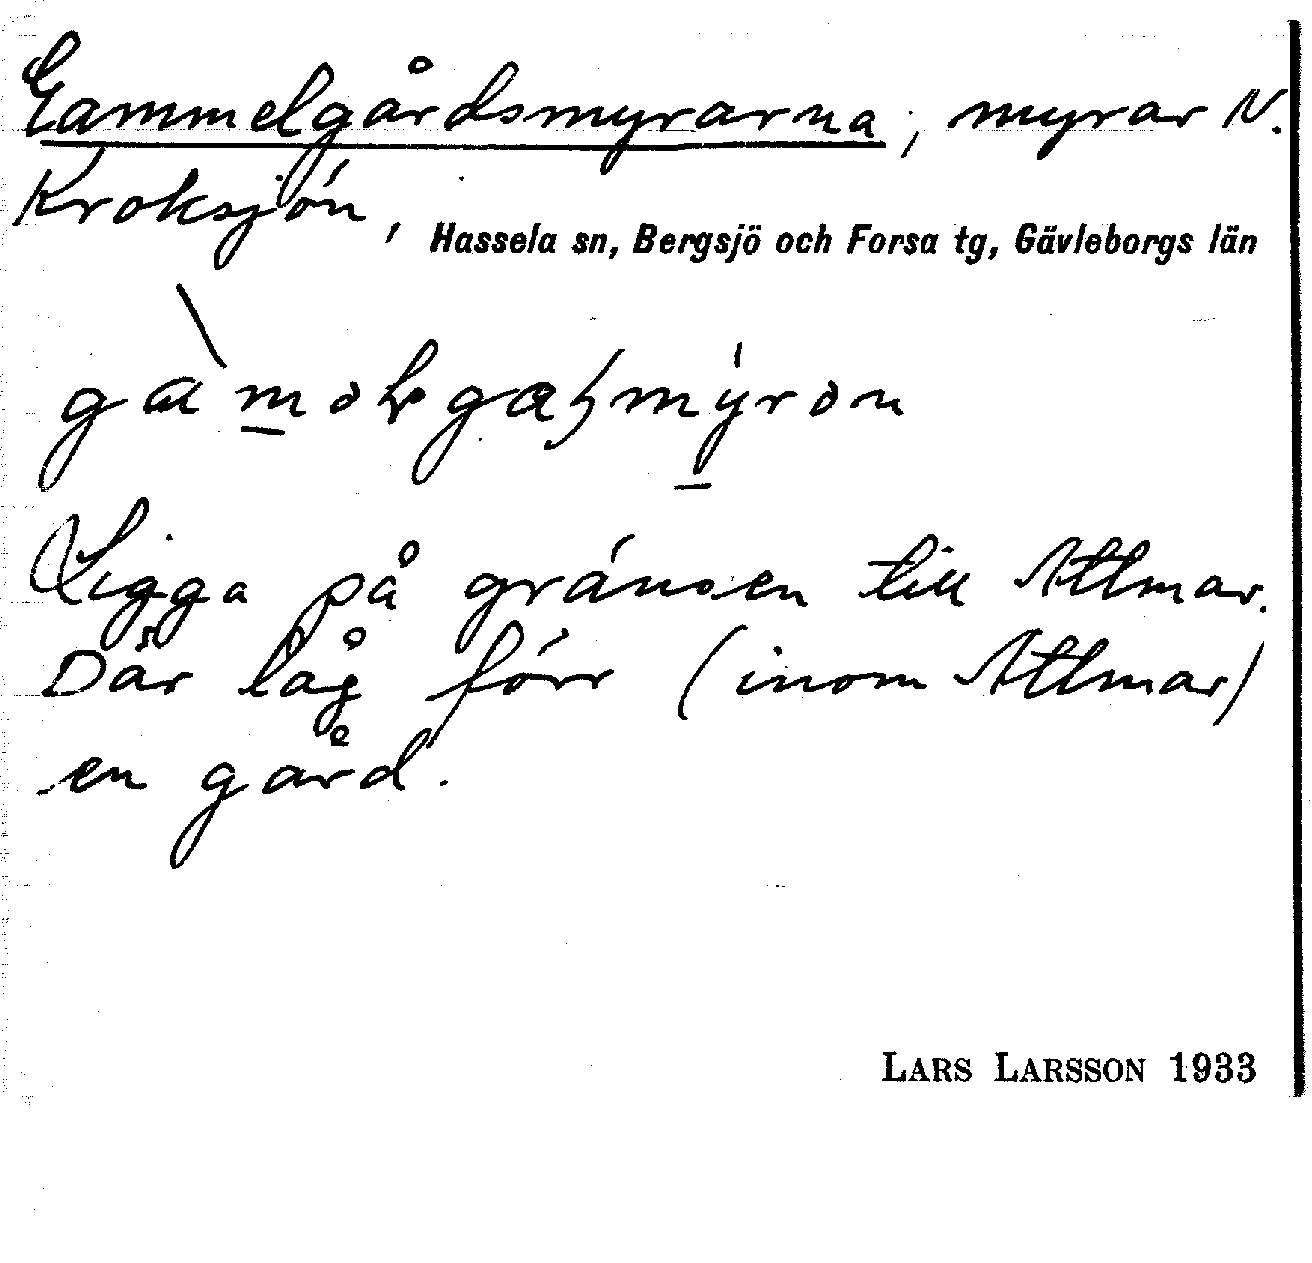 Gammelgårdsmyrarna, myrar N.
Kroksjön, Hassela sn, Bergsjö och Forsa tg, Gävleborgs län
Ligga på gränsen till Attmar.
Där låg förr (inom Attmar)
en gård.
LARS LARSSON 1933